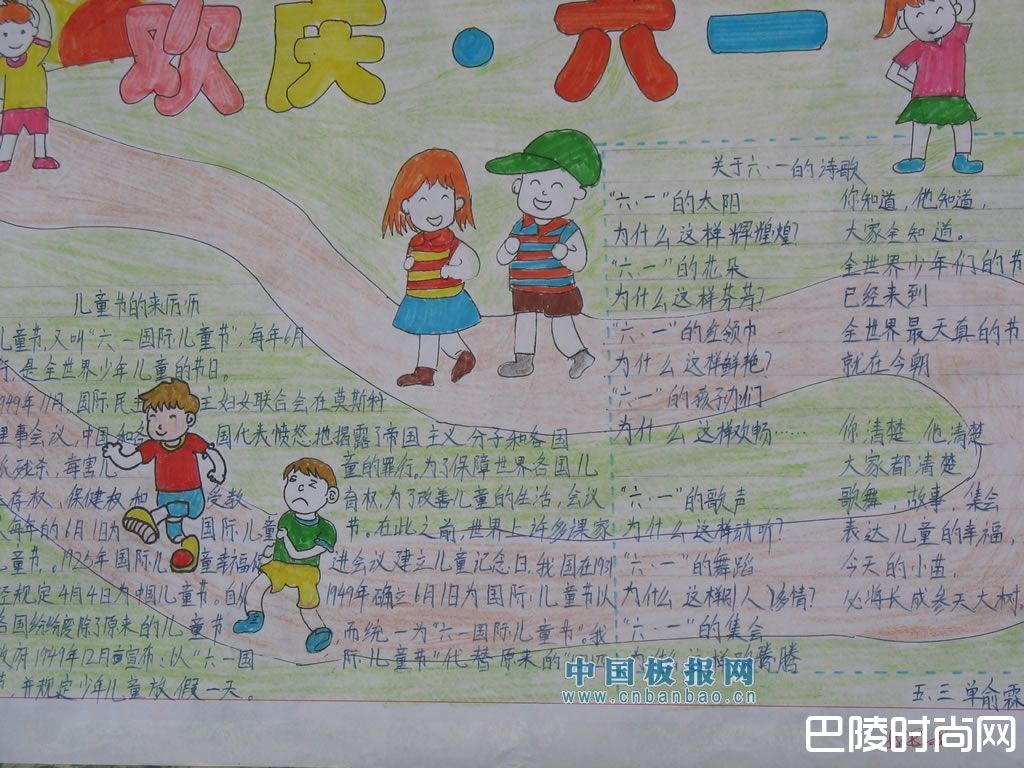 欢庆·六一
儿童节的来历师
儿童节,又叫“六一国际儿童节”,每年6月
行,是全世界少年儿童的节日。
1949年11月,国际民主妇女联合会在莫斯科
理事会议,中国和各国代表愤怒地揭露了帝国主义分子和各国
残杀,毒害儿童的罪行。为了保障世界各国儿
生存权、保健权和受教育权,为了改善儿童的生活,会议
每年的6月1日为国际儿童节。在此之前,世界上许多课家
儿童节。1925年国际儿童幸福促进会议建立儿童记念日,我国在193
经规定4月4日为中国儿童节。自从1949年确立6月1日为国际儿童节以
各国纷纷废除了原来的儿童节而统一为“六一国际儿童节”。我
政府1949年12月宣布:以“六一国际儿童节”代替原来的“
并规定少年儿童放假一天。
关于六·一的诗歌
“六·一”的太阳
为什么这样辉煌煌?
“六·一”的花朵
为什么这样芬芳?
“六·一”的红领巾
为什么这样鲜艳?
“六·一”的孩子们
为什么这样欢畅……
“六·一”的歌声
为什么这样动听?
“六·一”的舞蹈
为什么这样引人多情?
“六·一”的集会
为什么这样欢腾腾
你知道,他知道,
大家全知道。
全世界少年们的节
已经来到
全世界最天真的节
就在今朝
你清楚,他清楚
大家都清楚
歌舞,故事,集会
表达儿童的幸福,
今天的小苗,
必将长成参天大树。
五、三 单俞霖
中国板报网
www.cnbanbao.cn
巴陵时尚网